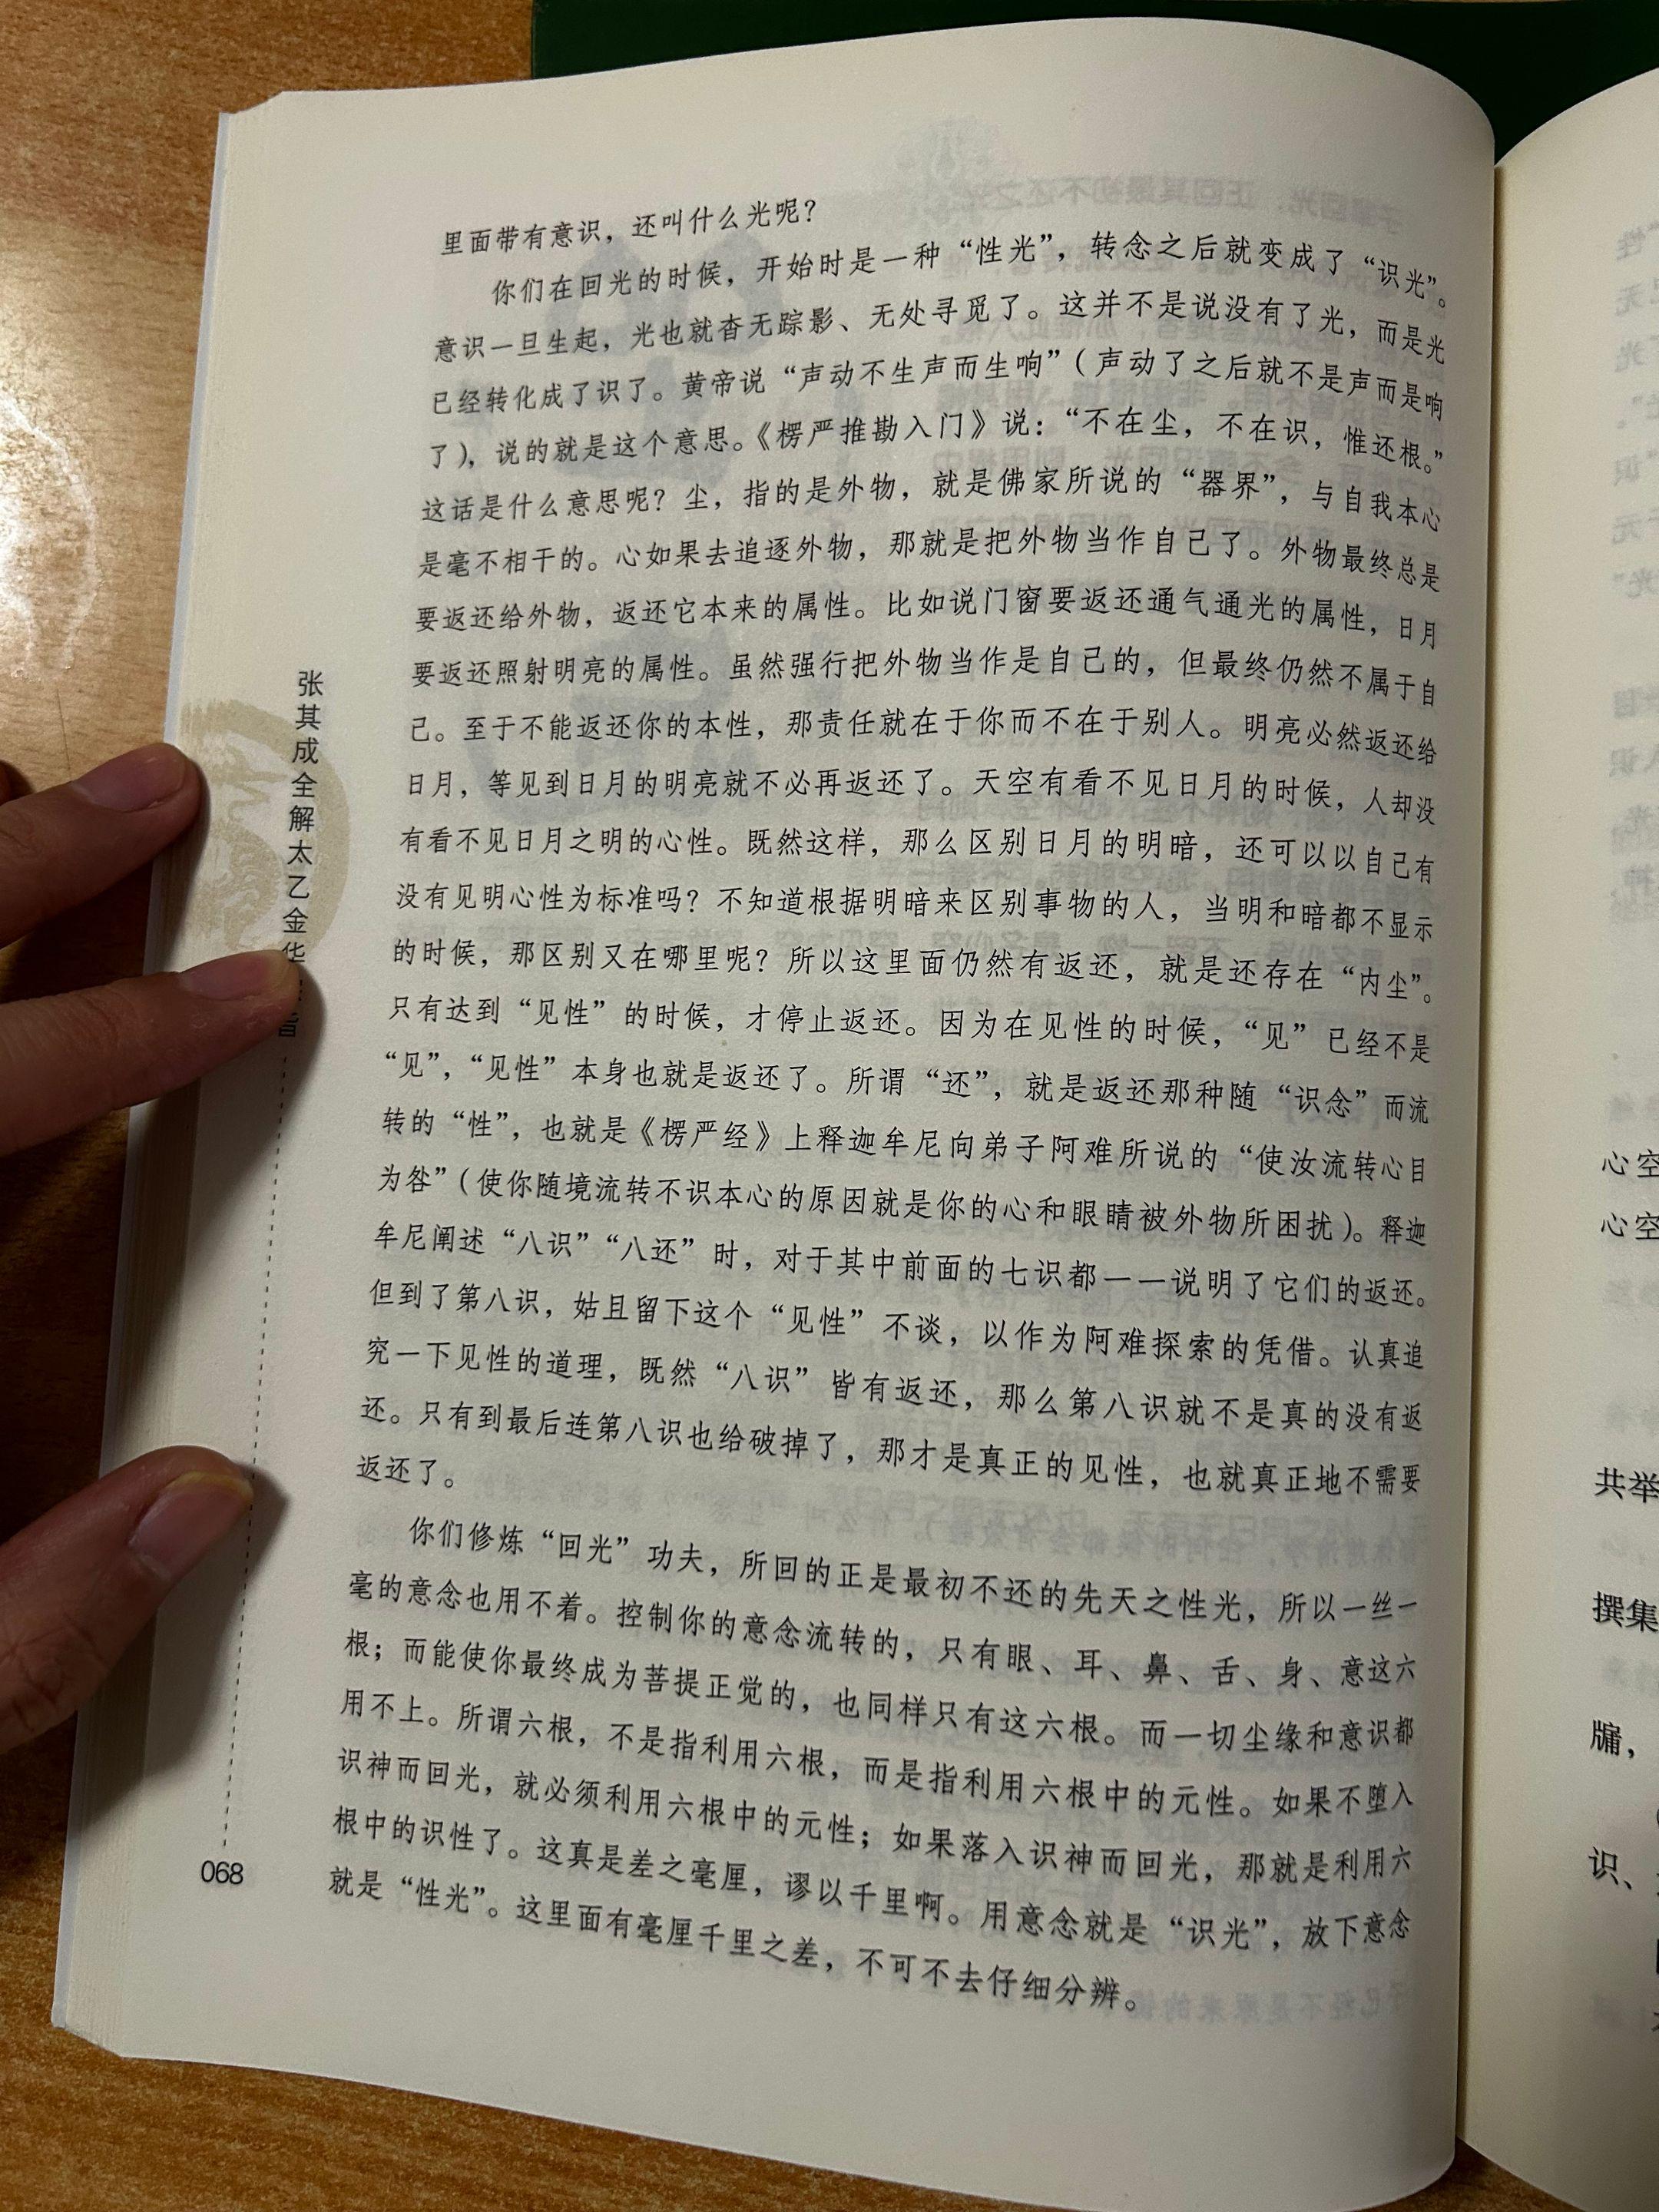 里面带有意识，还叫什么光呢？
你们在回光的时候，开始时是一种“性光”，转念之后就变成了“识光”。
意识一旦生起，光也就杳无踪影、无处寻觅了。这并不是说没有了光，而是光
已经转化成了识了。黄帝说“声动不生声而生响”（声动了之后就不是声而是响
了），说的就是这个意思。《楞严推勘入门》说：“不在尘，不在识，惟还根。”
这话是什么意思呢？尘，指的是外物，就是佛家所说的“器界”，与自我本心
是毫不相干的。心如果去追逐外物，那就是把外物当作自己了。外物最终总是
要返还给外物，返还它本来的属性。比如说门窗要返还通气通光的属性，日月
要返还照射明亮的属性。虽然强行把外物当作是自己的，但最终仍然不属于自
己。至于不能返还你的本性，那责任就在于你而不在于别人。明亮必然返还给
日月，等见到日月的明亮就不必再返还了。天空有看不见日月的时候，人却没
有看不见日月之明的心性。既然这样，那么区别日月的明暗，还可以以自己有
没有见明心性为标准吗？不知道根据明暗来区别事物的人，当明和暗都不显示
的时候，那区别又在哪里呢？所以这里面仍然有返还，就是还存在“内尘”。
只有达到“见性”的时候，才停止返还。因为在见性的时候，“见”已经不是
“见”，“见性”本身也就是返还了。所谓“还”，就是返还那种随“识念”而流
转的“性”，也就是《楞严经》上释迦牟尼向弟子阿难所说的“使汝流转心目
为咎”（使你随境流转不识本心的原因就是你的心和眼睛被外物所困扰）。释迦
牟尼阐述“八识”“八还”时，对于其中前面的七识都一一说明了它们的返还。
但到了第八识，姑且留下这个“见性”不谈，以作为阿难探索的凭借。认真追
究一下见性的道理，既然“八识”皆有返还，那么第八识就不是真的没有返
还。只有到最后连第八识也给破掉了，那才是真正的见性，也就真正地不需要
返还了。
你们修炼“回光”功夫，所回的正是最初不还的先天之性光，所以一丝一
毫的意念也用不着。控制你的意念流转的，只有眼、耳、鼻、舌、身、意这六
根；而能使你最终成为菩提正觉的，也同样只有这六根。而一切尘缘和意识都
用不上。所谓六根，不是指利用六根，而是指利用六根中的元性。如果不堕入
识神而回光，就必须利用六根中的元性；如果落入识神而回光，那就是利用六
根中的识性了。这真是差之毫厘，谬以千里啊。用意念就是“识光”，放下意念
就是“性光”。这里面有毫厘千里之差，不可不去仔细分辨。
张其成全解太乙金华
旨
068
心空
心空
共举
撰集
牖，
识、